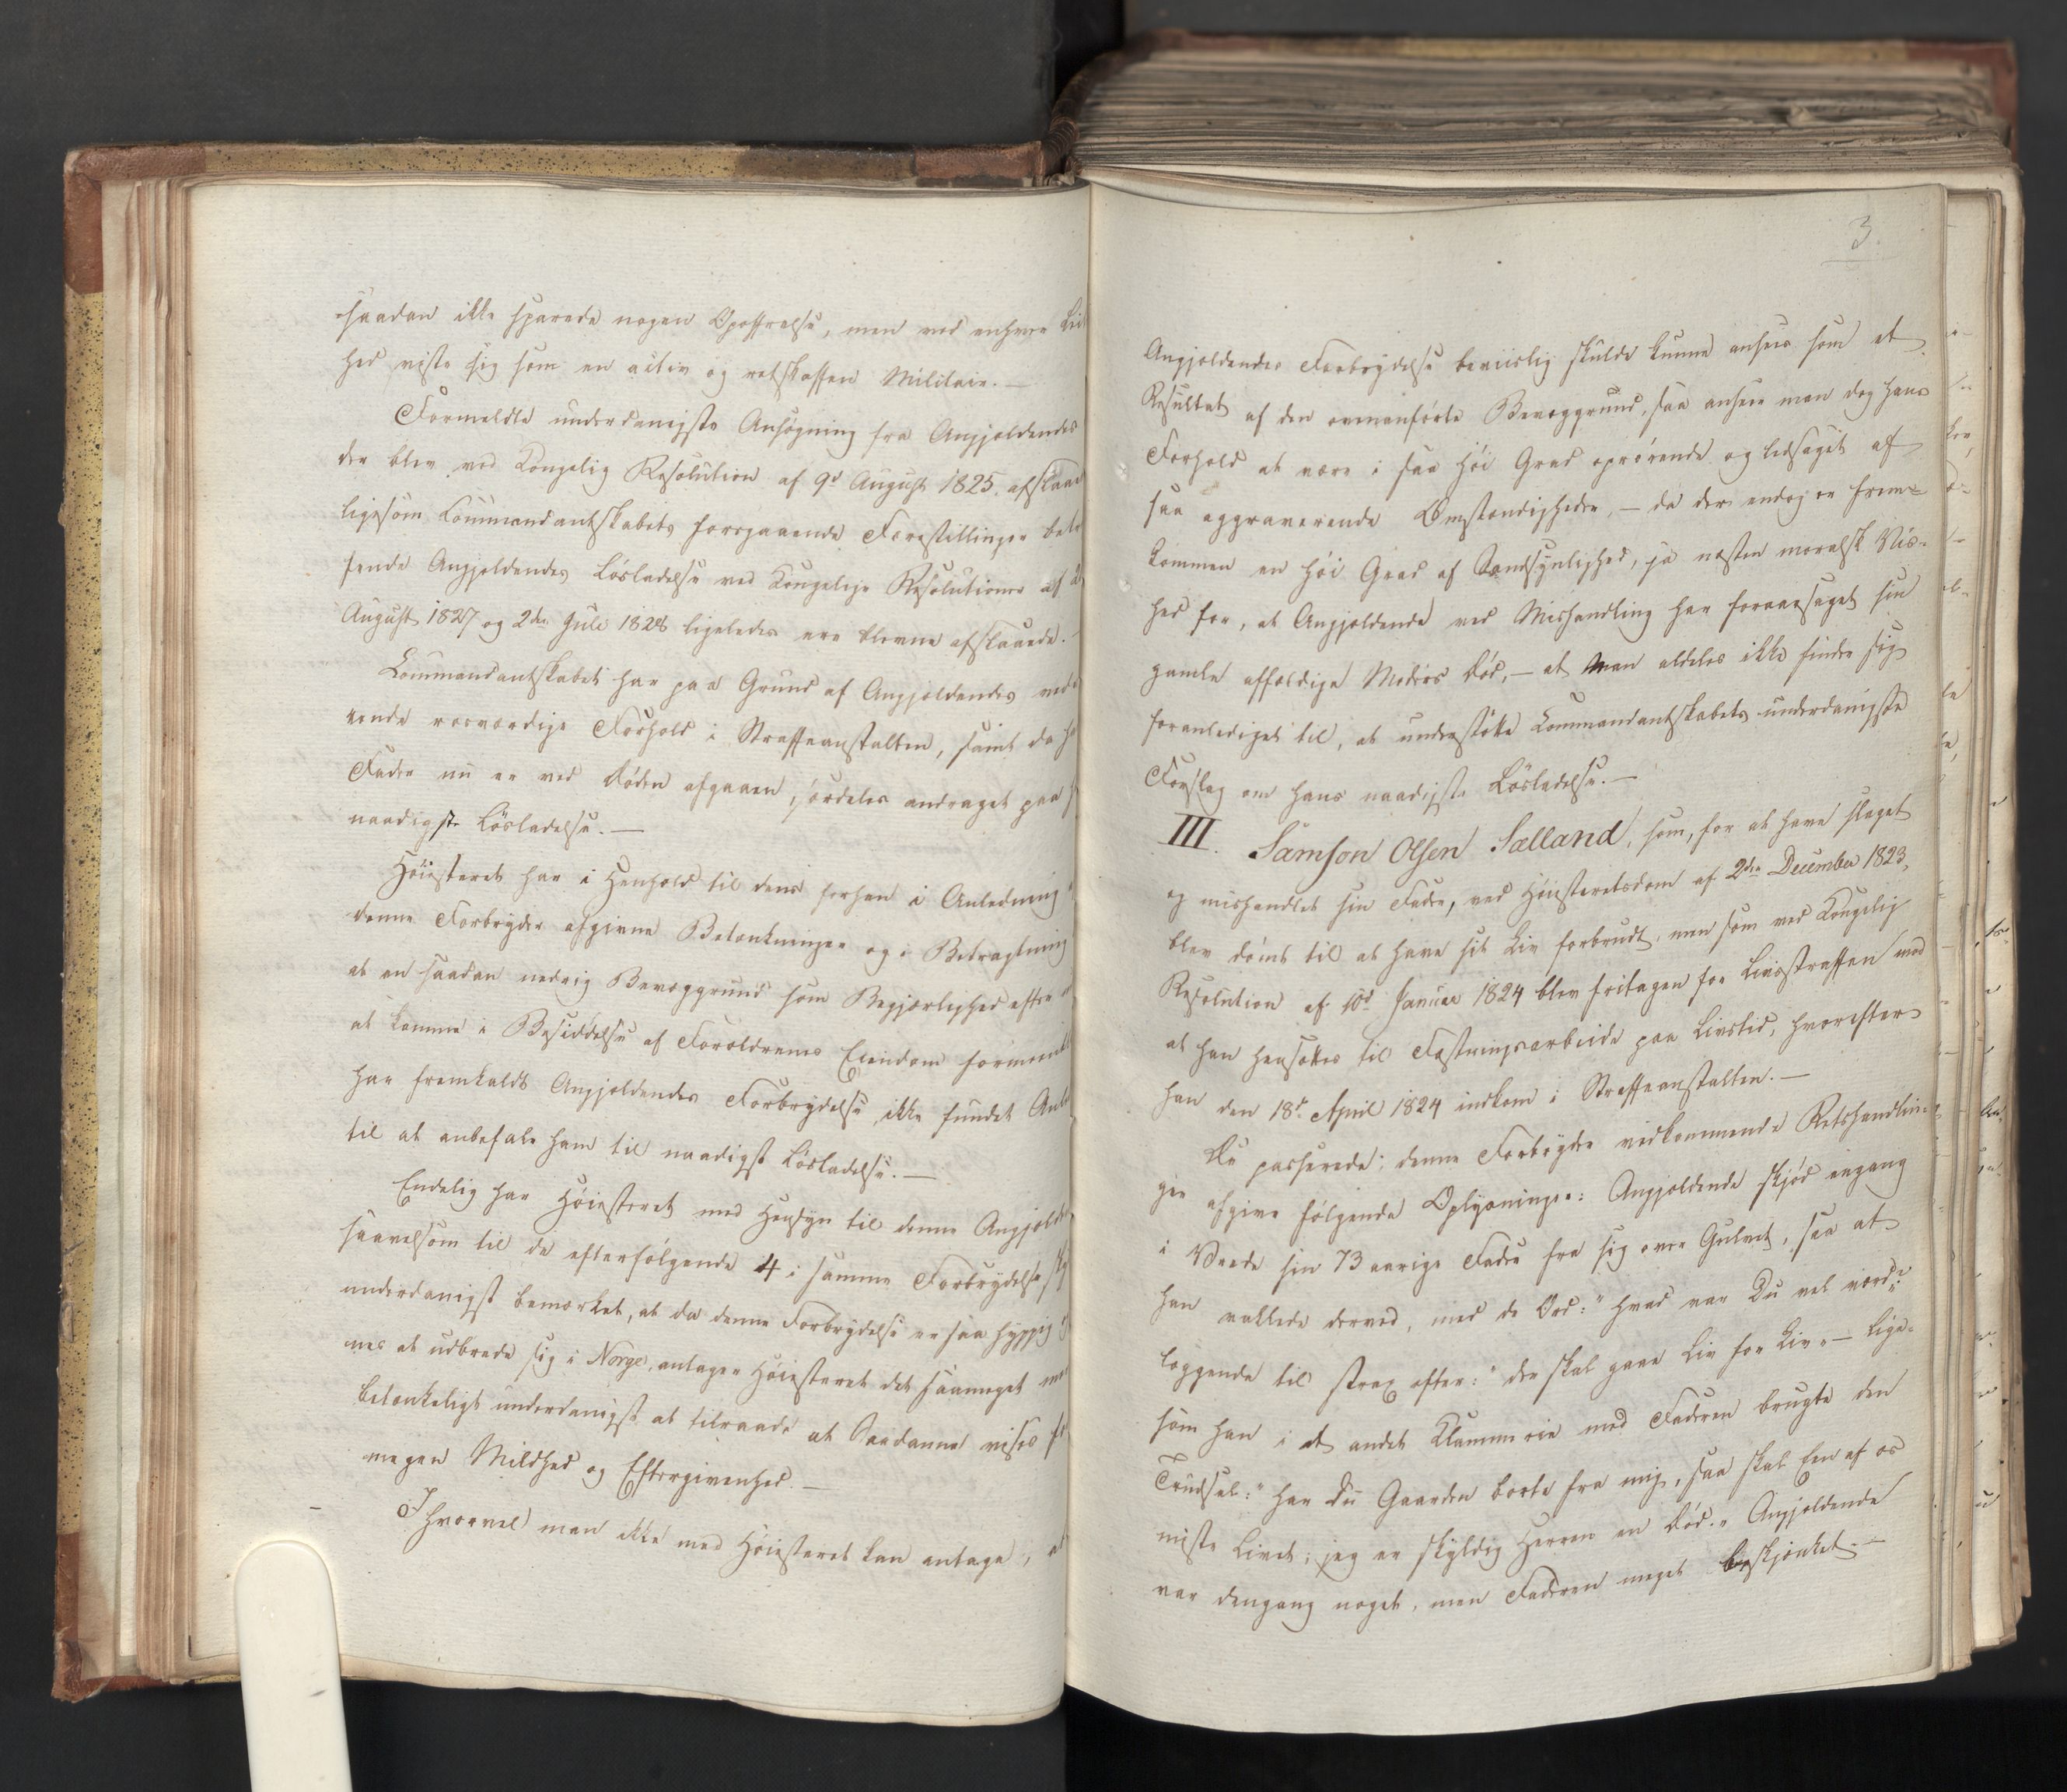 saadan ikke sparede nogen Opoffrelse, men ved enhver Lei
hed viste sig som en activ og retskaffen Militair. —
Formeldte underdanigste Ansøgning fra Angjeldendes
der blev ved Kongelig Resolution af 9d August 1825 afslaaet
ligesom Commandantskabets foregaaende Forestillinger betræf
fende Angjeldendes Løsladelse ved Kongelige Resolutioner af 2
August 1827 og 2den Juli 1828 ligeledes ere blevne afslaaede.
Commandantskabet har paa Grund af Angjeldendes ved
rende roesværdige Forhold i Straffeanstalten, samt da ha
Fader nu er ved Døden afgaaen, særdeles andraget paa h
naadigste Løsladelse. —
Høiesteret har i Henhold til dens forhen i Anledning
denne Forbryder afgivne Betænkninger og i Betragtning
at en saadan nedrig Bevæggrund som Begjærlighed efter
at komme i Besiddelse af Forældrenes Eiendom formeentl
har fremkaldt Angjeldendes Forbrydelse, ikke fundet Anl
til at anbefale ham til naadigst Løsladelse. —
Endelig har Høiesteret med Hensyn til denne Angjelde
saavelsom til de efterfølgende 4 i samme Forbrydelse sky
underdanigst bemærket, at da denne Forbrydelse er saa hyppig
nes at udbrede sig i Norge, antager Høiesteret det saameget mer
betænkeligt underdanigst at tilraade at Saadanne vises fo
megen Mildhed og Eftergivenhed. —
Ihvorvel man ikke med Høiesteret kan antage, at
3.
Angjeldendes Forbrydelse beviislig skulde kunne ansees som et
Resultat af den ovenanførte Bevæggrund, saa anseer man dog hans
Forhold at være i saa høi Grad oprørende og ledsaget af
saa aggraverende Omstændigheder, — da der endog er frem-
kommen en høi Grad af Sandsynlighed, ja næsten moralsk Vis-
hed for, at Angjeldende ved Mishandling har foraarsaget sin
gamle affældige Moders Død, — at man aldeles ikke finder sig
foranlediget til, at understøtte Commandantskabets underdanigste
Forslag om hans naadigste Løsladelse. —
III. Samson Olsen Sælland, som, for at have slaget
og mishandlet sin Fader, ved Høiesteretsdom af 2den December 1823,
blev dømt til at have sit Liv forbrudt, men som ved Kongelig
Resolution af 10d Januar 1824 blev fritagen for Livsstraffen mod
at han hensættes til Fæstningsarbeide paa Livstid, hvorefter
han den 18d April 1824 indkom i Straffeanstalten. —
De passerede, denne Forbryder vedkommende Retshandlin-
ger afgive følgende Oplysninger: Angjeldende skjød engang
i Vrede sin 73 aarige Fader fra sig over Gulvet, saa at
han vaklede derved, med de Ord: "hvad var Du vel værd?"
læggende til strax efter: "der skal gaae Liv for Liv" — lige-
som han i et andet Klammerie med Faderen brugte den
Trudsel: "har Du Gaarden borte fra mig, saa skal Een af os
miste Livet; jeg er skyldig Herren en Død." Angjeldende
var dengang noget, men Faderen meget beskjænket. —